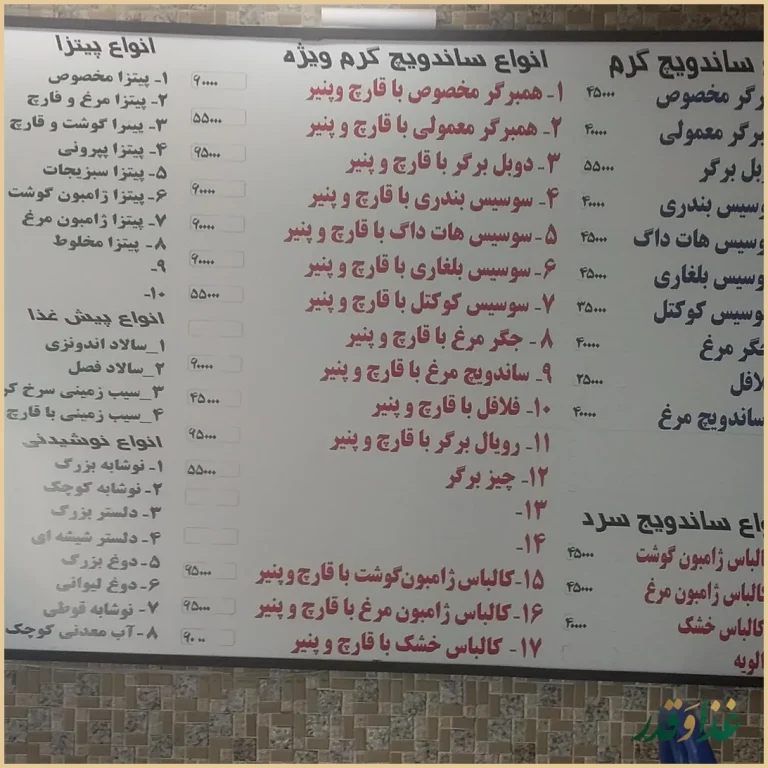 ساندویچ گرم
رگر مخصوص ۴۵۰۰۰
برگر معمولی ۴۰۰۰۰
وبل برگر ۵۵۰۰۰
وسیس بندری ۴۰۰۰۰
وسیس هات داگ ۴۵۰۰۰
وسیس بلغاری ۴۵۰۰۰
وسیس کوکتل ۳۵۰۰۰
جگر مرغ ۴۰۰۰۰
لافل ۲۵۰۰۰
ساندویچ مرغ ۴۰۰۰۰
واع ساندویچ سرد
کالباس ژامبون گوشت ۴۵۰۰۰
کالباس ژامبون مرغ ۴۵۰۰۰
کالباس خشک ۴۰۰۰۰
الویه
انواع ساندویچ گرم ویژه
۱- همبرگر مخصوص با قارچ وپنیر ۶۰۰۰۰
۲- همبرگر معمولی با قارچ و پنیر ۵۵۰۰۰
۳- دوبل برگر با قارچ و پنیر ۶۵۰۰۰
۴- سوسیس بندری با قارچ و پنیر ۶۰۰۰۰
۵- سوسیس هات داگ با قارچ و پنیر ۶۰۰۰۰
۶- سوسیس بلغاری با قارچ و پنیر ۶۰۰۰۰
۷- سوسیس کوکتل با قارچ و پنیر ۵۵۰۰۰
۸- جگر مرغ با قارچ و پنیر
۹- ساندویچ مرغ با قارچ و پنیر ۶۰۰۰۰
۱۰- فلافل با قارچ و پنیر ۴۵۰۰۰
۱۱- رویال برگر با قارچ و پنیر ۶۵۰۰۰
۱۲- چیز برگر ۵۵۰۰۰
۱۳-
۱۴-
۱۵- کالباس ژامبون گوشت با قارچ و پنیر ۶۵۰۰۰
۱۶- کالباس ژامبون مرغ با قارچ و پنیر ۶۵۰۰۰
۱۷- کالباس خشک با قارچ و پنیر ۶۰۰۰۰
انواع پیتزا
۱- پیتزا مخصوص
۲- پیتزا مرغ و قارچ
۳- پیتزا گوشت و قارچ
۴- پیتزا پپرونی
۵- پیتزا سبزیجات
۶- پیتزا ژامبون گوشت
۷- پیتزا ژامبون مرغ
۸- پیتزا مخلوط
۹-
۱۰-
انواع پیش غذا
۱_سالاد اندونزی
۲_سالاد فصل
۳_سیب زمینی سرخ کر
۴_سیب زمینی با قارچ
انواع نوشیدنی
۱- نوشابه بزرگ
۲- نوشابه کوچک
۳- دلستر بزرگ
۴- دلستر شیشه ای
۵- دوغ بزرگ
۶- دوغ لیوانی
۷- نوشابه قوطی
۸- آب معدنی کوچک
غذا و قدر